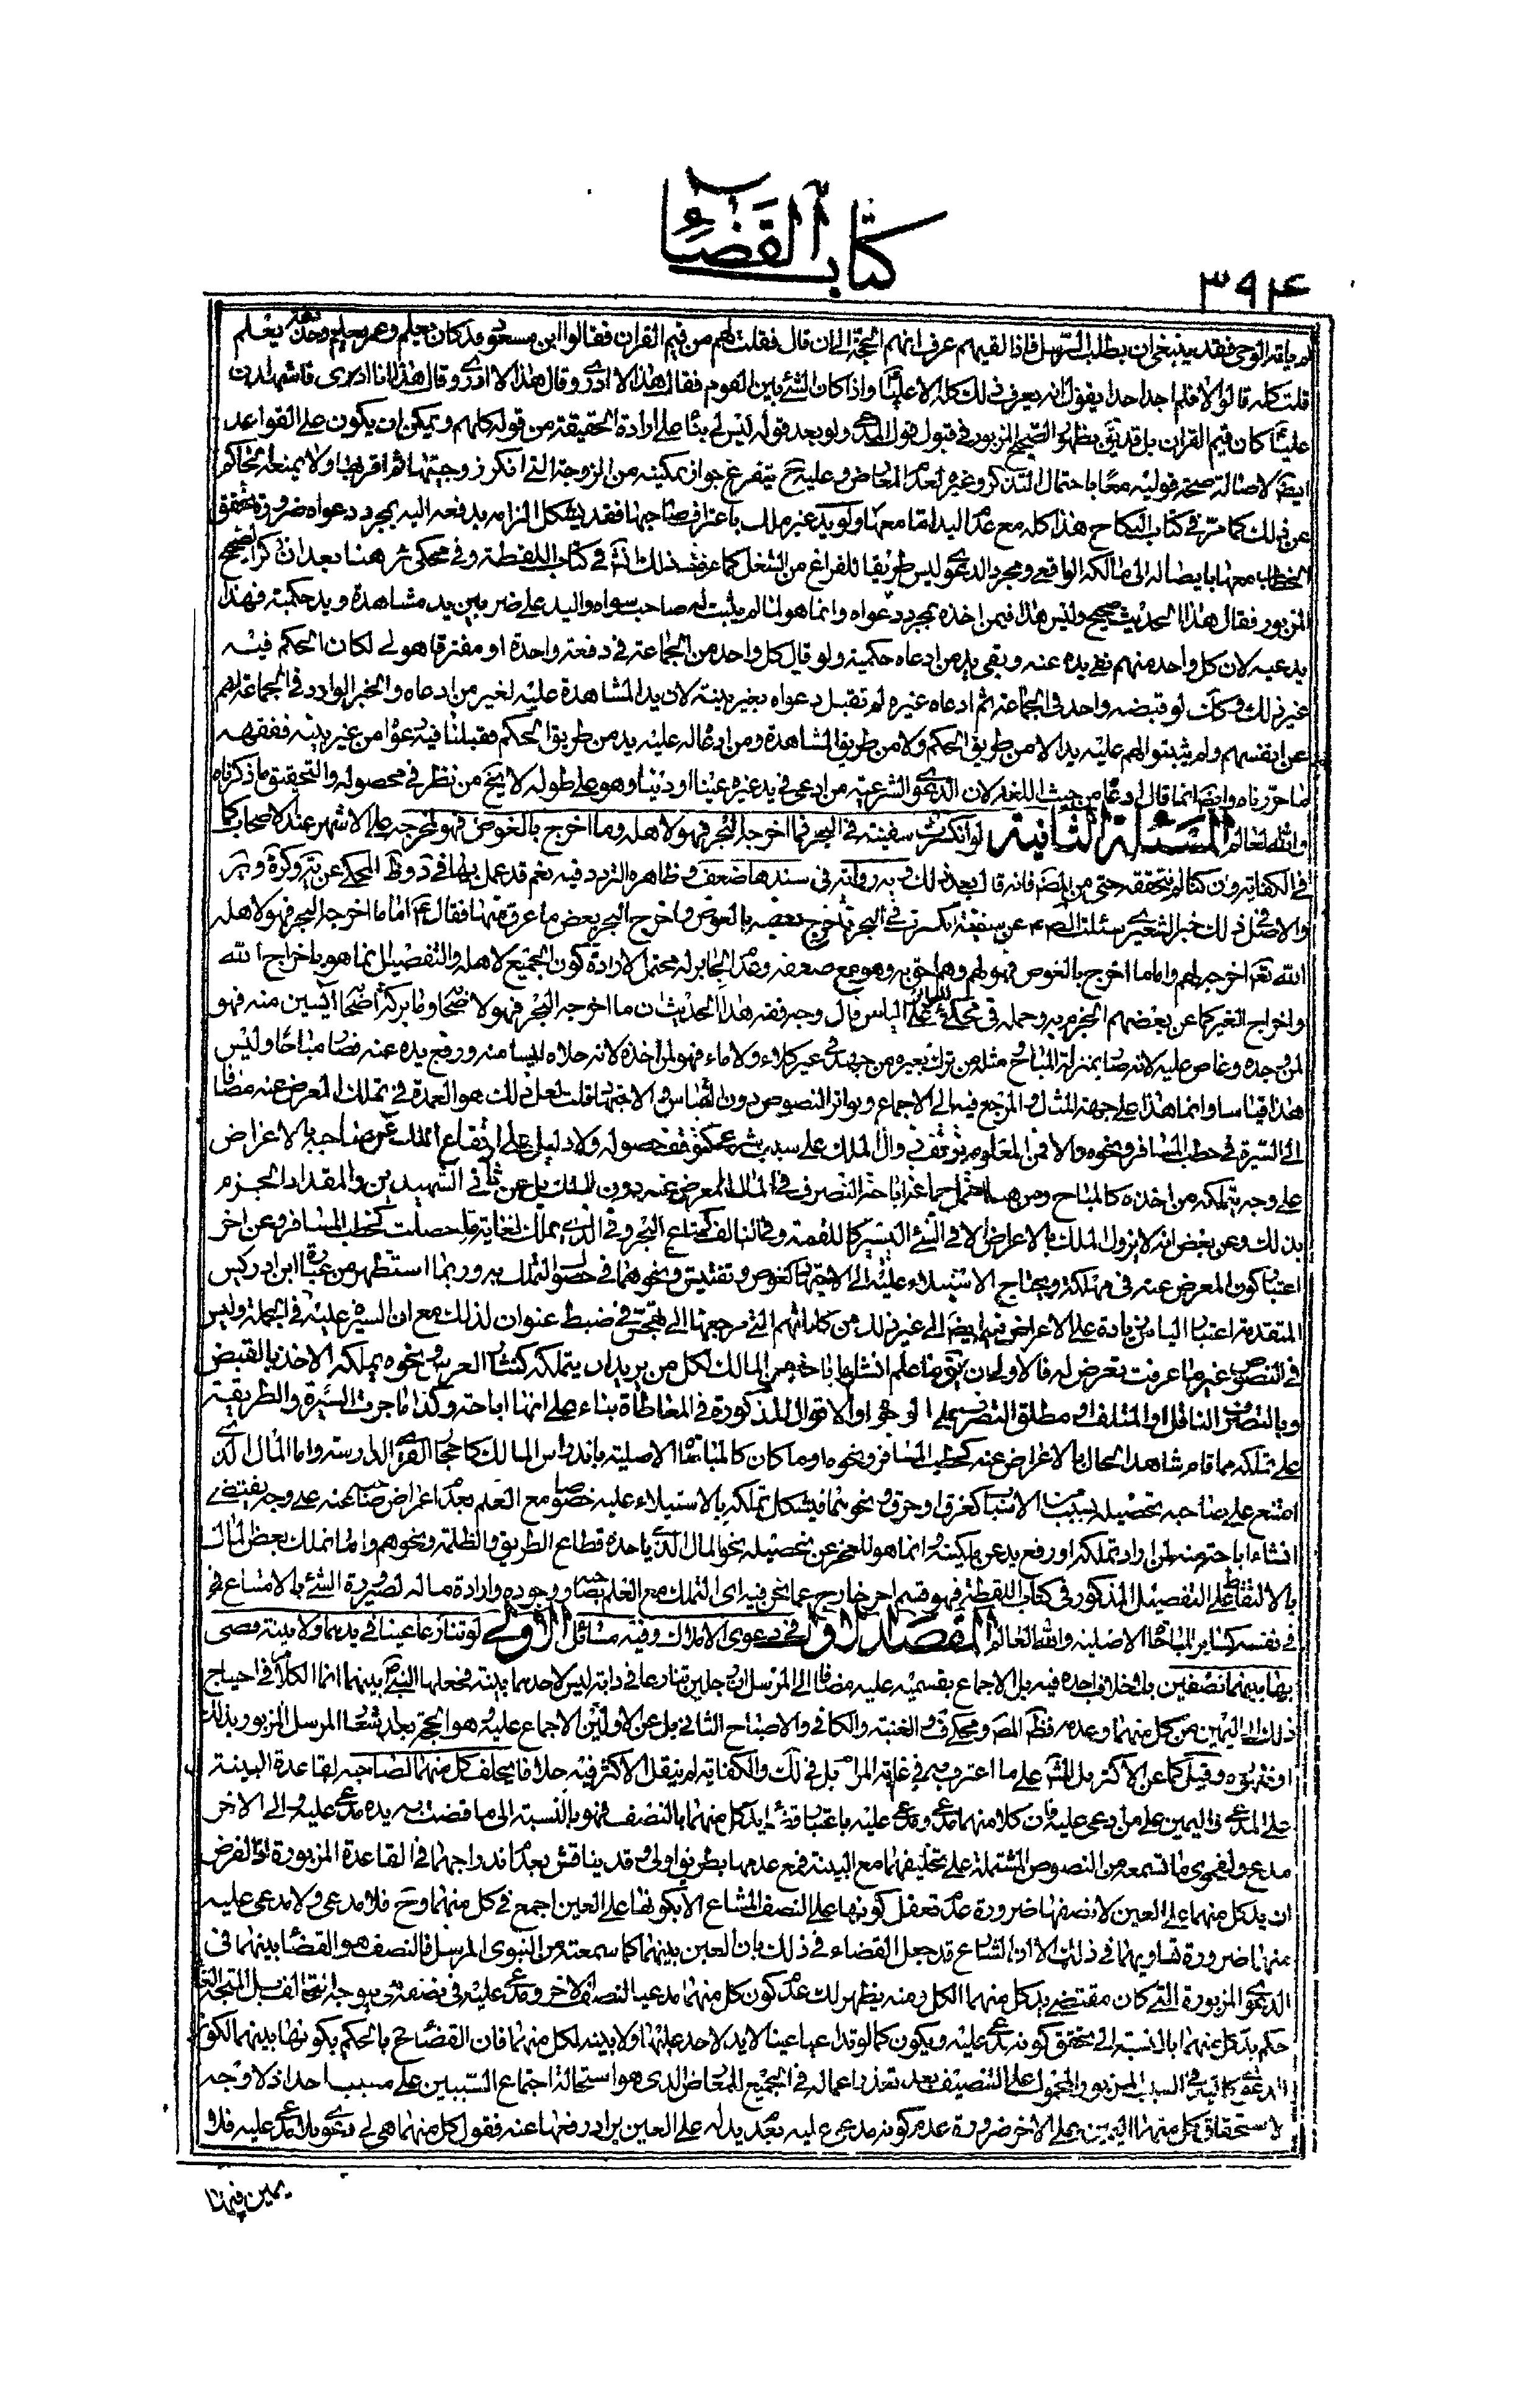 كتاب القضاء
٣٩٤
لم ياته الوحي فقد ينبغي ان يطلب الرسل فاذا لقيهم عرف انهم الحجة الى ان قال فقلت لهم من قيم القران فقالوا ابن مسعود قد كان يعلم وعمر يعلم وحذيفة يعلم
قلت كله قالوا لا فلم اجد احدا يقول انه يعرف ذلك كله الا عليا واذا كان الشئ بين القوم فقال هذا لا ادري وقال هذا لا ادري وقال هذا انا ادري فاشهد ان
عليا كان قيم القران بل قد يظهر الصحيح المزبور في قبول قول المدعي ولو بعد قوله ليس لي بناء على ارادة الحقيقة من قوله كلهم ويمكن ان يكون على القواعد
ايضا لاصالة صحة قوليه معا باحتمال التذكر وغيره لعدم المعارض وعليه ح يتفرع جواز تمكينه من الزوجة اذا انكر زوجيتها ثم اقر بها ولا يمنعه تحاكم
عن ذلك كما مر في كتاب النكاح هذا كله مع عدم اليد اما معها ولو يد غير ملك باعتراف صاحبها فقد يشكل الزامه بدفعه اليه بمجرد دعواه ضرورة تحقق
الخطاب معها بايصاله الى مالكه الواقعي ومجرد الدعوى ليس طريقا للفراغ من الشغل كما عرفت ذلك في كتاب اللقطة وفي محكي ئر هنا بعد ان ذكر الصحيح
المزبور فقال هذا الحديث صحيح وليس هذا فيمن اخذه بمجرد دعواه وانما هو لما لم يثبت له صاحب سواه واليد على ضربين يد مشاهدة ويد حكمية فهذا
يد عيه لان كل واحد منهم نفى يده عنه وبقي يد من ادعاه حكمية ولو قال كل واحد من الجماعة في دفعة واحدة او مفترقا هو لي لكان الحكم فيه
غير ذلك وكك لو قبضه واحد من الجماعة ثم ادعاه غيره لم تقبل دعواه بغير بينة لان اليد المشاهدة عليه لغير من ادعاه والخبر الوارد في الجماعة انهم نفوه
عن انفسهم ولم يثبتوا لهم عليه يدا لا من طريق الحكم ولا من طريق المشاهدة ومن ادعاه له عليه يد من طريق الحكم فقبلنا فيه دعواه من غير بينة ففقهه
ما حررناه وايضا انما قال ادعاه من حيث اللغة لان الدعوى الشرعية من ادعى في يد غيره عينا او دينا وهو على طوله لا يخ من نظر في محصوله والتحقيق ما ذكرناه
والله العالم المسئلة الثانية لو انكسرت سفينة في البحر فما اخرجه البحر فهو لاهله وما اخرج بالغوص فهو لمخرجه على الاشهر عند الاصحاب كما
في الكفاية وان كنا لم نتحققه حتى من المصنف فانه قال بعد ذلك وبه رواية في سندها ضعف وظاهره التردد فيه نعم قد عمل بها في
والاصل في ذلك خبر الشعيري سئلت الص ع عن سفينة انكسرت في البحر فاخرج بعضه بالغوص واخرج البحر بعض ما غرق منها فقال ع اما ما اخرجه البحر فهو لاهله
الله تعالى اخرجه لهم واما ما اخرج بالغوص فهو لهم وهم احق به وهو مع ضعفه وعدم الجابر له محتمل لارادة كون الجميع لاهله والتفصيل انما هو باخراج الله
واخراج الغير كما عن بعضهم الجزم به وحمله في محكي السرائر على الياس قال وجه فقه هذا الحديث ان ما اخرجه البحر فهو لاصحابه وما تركه اصحابه ايسين منه فهو
لمن وجده وغاص عليه لانه صار بمنزلة المباح مثله من ترك بعيره من جهد في غير كلاء ولا ماء فهو لمن اخذه لانه خلاه ايسا منه ورفع يده عنه فصار مباحا وليس
هذا قياسا وانما هذا على جهة المثل والمرجع فيه الى الاجماع وتواتر النصوص دون القياس والاجتهاد قلت لعل ذلك هو العمدة في تملك المعرض عنه مضافا
الى السيرة في حطب المسافر ونحوه والا فمن المعلوم توقف زوال الملك على سبب شرعي كتوقف حصوله ولا دليل على انقطاع الملك عن صاحبه بالاعراض
على وجه يتملكه من اخذه كالمباح ومن هنا احتمل جماعة اباحة التصرف في المال المعرض عنه دون الملك بل عن ثاني الشهيدين والمقداد الجزم
بذلك وعن بعض انه لا يزول الملك بالاعراض الا في الشئ اليسير كاللقمة وفي التالف كمتاع البحر وفي الذي يملك لغاية قد حصلت كحطب المسافر وعن اخر
اعتبار كون المعرض عنه في مهلكة ويحتاج الاستيلاء عليه الى الاجتهاد كغوص وتفتيش ونحوهما في حصول التملك به وربما استظهر من عبارة ابن ادريس
المتقدمة اعتبار الياس زيادة على الاعراض فيه ايضا الى غير ذلك من كلماتهم التي مرجعها الى تهجس في ضبط عنوان لذلك مع ان السيرة عليه في الجملة وليس
في النصوص غير ما عرفت تعرض له فالاولى ان يقال ما علم انشاء اباحة من المالك لكل من يريد ان يتملكه كنثار العرس ونحوه يملكه الاخذ بالقبض
وبالتصرف الناقل او المتلف او مطلق التصرف على الوجوه او الاقوال المذكورة في المعاطاة بناء على انها اباحة وكذا ما جرت السيرة والطريقة
على تملكه مما قام شاهد الحال بالاعراض عنه كحطب المسافر ونحوه او ما كان كالمباحات الاصلية باندراس المالك كاحجار القرى الدارسة واما المال الذي
امتنع على صاحبه تحصيله بسبب من الاسباب كغرق او حرق ونحوهما فيشكل تملكه بالاستيلاء عليه خصوصا مع العلم بعدم اعراض صاحبه عنه على وجه يقتضي
انشاء اباحة منه لمن اراد تملكه او رفع يد عن ملكيته وانما هو للعجز عن تحصيله نحو المال الذي ياخذه قطاع الطريق والظلمة ونحوهم واما تملك بعض المال
بالالتقاط على التفصيل المذكور في كتاب اللقطة فهو قسم اخر خارج عما نحن فيه اي التملك مع العلم بصاحبه ووجوده وارادة ماله لصيرورة الشئ بالامتناع
في نفسه كسائر المباحات الاصلية والله العالم المقصد الاول في دعوى الاملاك وفيه مسائل الاولى لو تنازعا عينا في يدهما ولا بينة قضي
بها بينهما نصفين بلا خلاف اجده فيه بل الاجماع بقسميه عليه مضافا الى المرسل ان رجلين تنازعا في دابة ليس لاحدهما بينة فجعلها النبي ص بينهما انما الكلام في احتياج
ذلك الى اليمين من كل منهما وعدمه فظاهر المص ومحكي ف والغنية والكافي والاصباح الثاني بل عن الاولين الاجماع عليه وهو الحجة بعد اشعار المرسل المزبور بذلك
او ظهوره وقيل كما عن الاكثر بل المشهور على ما اعترف به في غاية المرام بل في لك والكفاية لم ينقل الاكثر فيه خلافا يحلف كل منهما لصاحبه لقاعدة البينة
على المدعي واليمين على من ادعي عليه فان كلا منهما مدع ومدعى عليه باعتبار يد كل منهما بالنصف فهو بالنسبة الى ما قضت به يده مدعى عليه والى الاخر
مدع ولفحوى ما تسمعه من النصوص المشتملة على تحليفهما مع البينة فمع عدمها بطريق اولى وقد يناقش بعدم اندراجهما في القاعدة المزبورة لان الفرض
ان يد كل منهما على العين لا نصفها ضرورة عدم تعقل كونها على النصف المشاع الا بكونها على العين اجمع في كل منهما وح فلا مدعي ولا مدعى عليه
منهما ضرورة تساويهما في ذلك الا ان الشارع قد جعل القضاء في ذلك بان العين بينهما كما سمعته من النبوي المرسل فالنصف هو القضاء بينهما في
الدعوى المزبورة التي كان مقتضى يد كل منهما الكل ومنه يظهر لك عدم كون كل منهما مدعيا النصف الاخر ومدعى عليه في نصفه
حكم يد كل منهما بالنسبة الى تحقق كونه مدعى عليه ويكون كما لو تداعيا عينا لا يد لاحد عليها ولا بينة لكل منهما فان القضاء ح بالحكم بكونها بينهما لكون
الدعوى كالبينتين في السبب المزبور والمحمول على التنصيف بعد تعذر اعماله في الجميع للمعارض الذي هو استحالة اجتماع السببين على مسبب واحد اذ لا وجه
لاستحقاق كل منهما اليمين على الاخر ضرورة عدم كونه مدعى عليه بعدم يد له على العين يراد رفعها عنه فقول كل منهما هي لي دعوى بلا مدعى عليه فلا
يمين فيهما